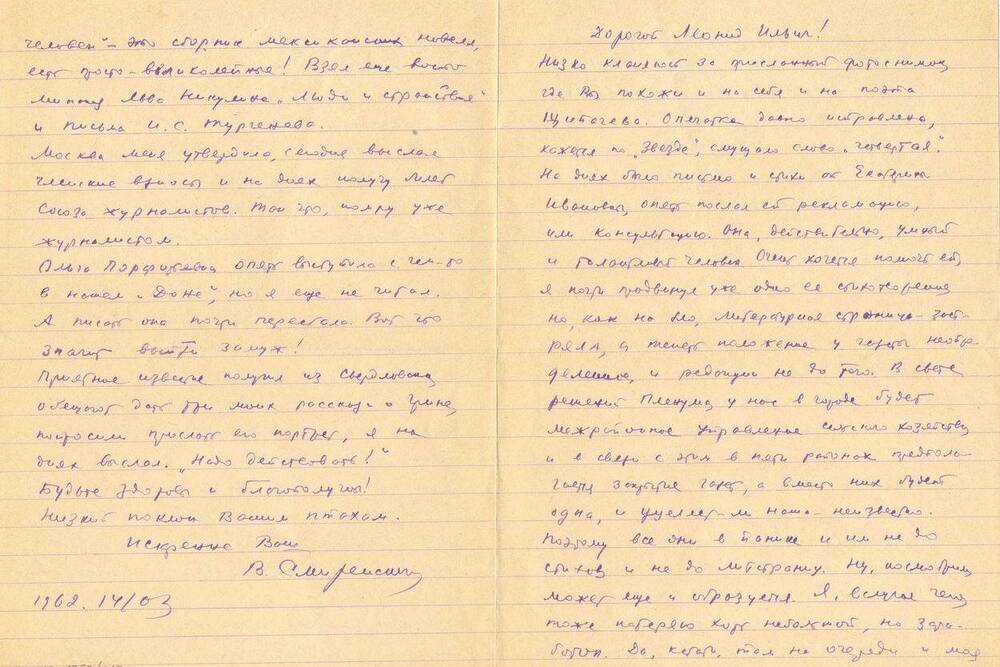 Дорогой Леонид Ильич!
Низко кланяюсь за присланный фотоснимок,
где Вы похожи и на себя и на поэта
Щипачева. Опечатка давно исправлена,
кажется по „Звезде", смущало слово „четвертая".
На днях было письмо и стихи от Екатерины
Ивановны, опять послал ей рекламацию,
или консультацию. Она, действительно, умный
и талантливый человек. Очень хочется помочь ей,
я почти продвинул уже одно ее стихотворение
но, как на зло, литературная страница заст-
ряла, а теперь положение у газеты неопре-
деленное, и редакции не до того. В свете
решений Пленума у нас в городе будет
межрайонное управление сельского хозяйства
и в связи с этим в пяти районах предпола-
гается закрытие газет, а вместо них будет
одна, и уцелеет-ли наша - неизвестно.
Поэтому все они в панике и им не до
стихов и не до литстраниц. Ну, посмотрим
может еще и образуется. Я, в случае чего
тоже потеряю хоть небольшой, но зара-
боток. Да, кстати, там на очереди и моя
человек" - это сборник мексиканских новелл,
есть просто - великолепные! Взял еще воспо-
минания Льва Никулина „Люди и странствия"
и письма И. С. Тургенева.
Москва меня утвердила, сегодня выслал
членские взносы и на днях получу билет
Союза журналистов. Так что, помру уже
журналистом.
Ольга Порфирьевна опять выступила с чем-то
в нашем „Доне", но я еще не читал.
А писать она почти перестала. Вот что
значит выйти замуж!
Приятное известие получил из Свердловска
обещают дать три моих рассказа о Грине,
попросили прислать его портрет, я на
днях выслал. „Надо действовать!"
Будьте здоровы и благополучны!
Низкий поклон Вашим птахам.
Искренне Ваш
В. Смиренский
1962. 14/03